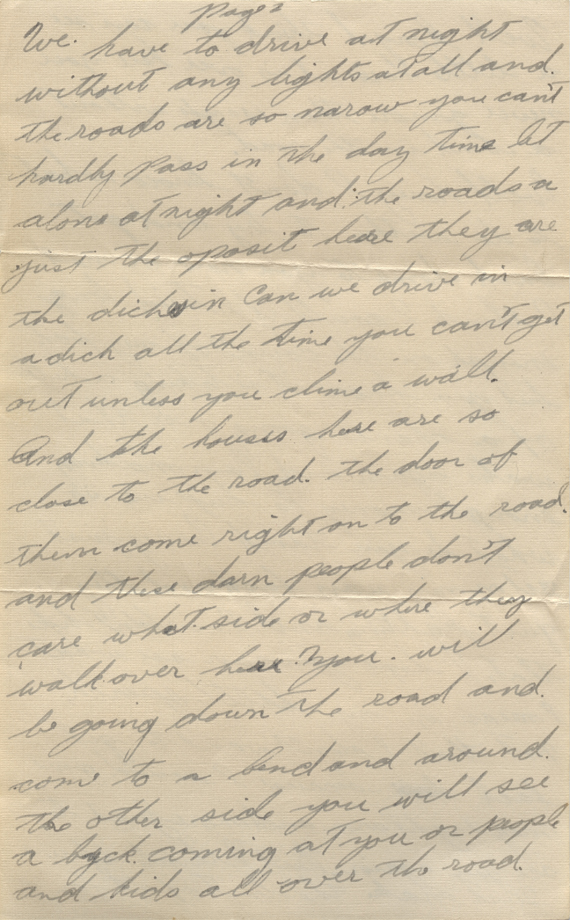 page 2
We. have to drive at night
without any lights at all and.
the roads are so narow you can't
hardly pass in the day time let
alone at night and the roads a
just the oposit heare they are
the dich in Can we drive in
a dich all the time you can't get
out unless you clime a wall.
And the houses here are so
close to the road. the door of
them come right on to the road.
and these darn people don't
care what side or where they
walk over here. you. will
be going down the road and.
come to a bend and around.
the other side you will see
a byck. coming at you or people
and kids all over the road.